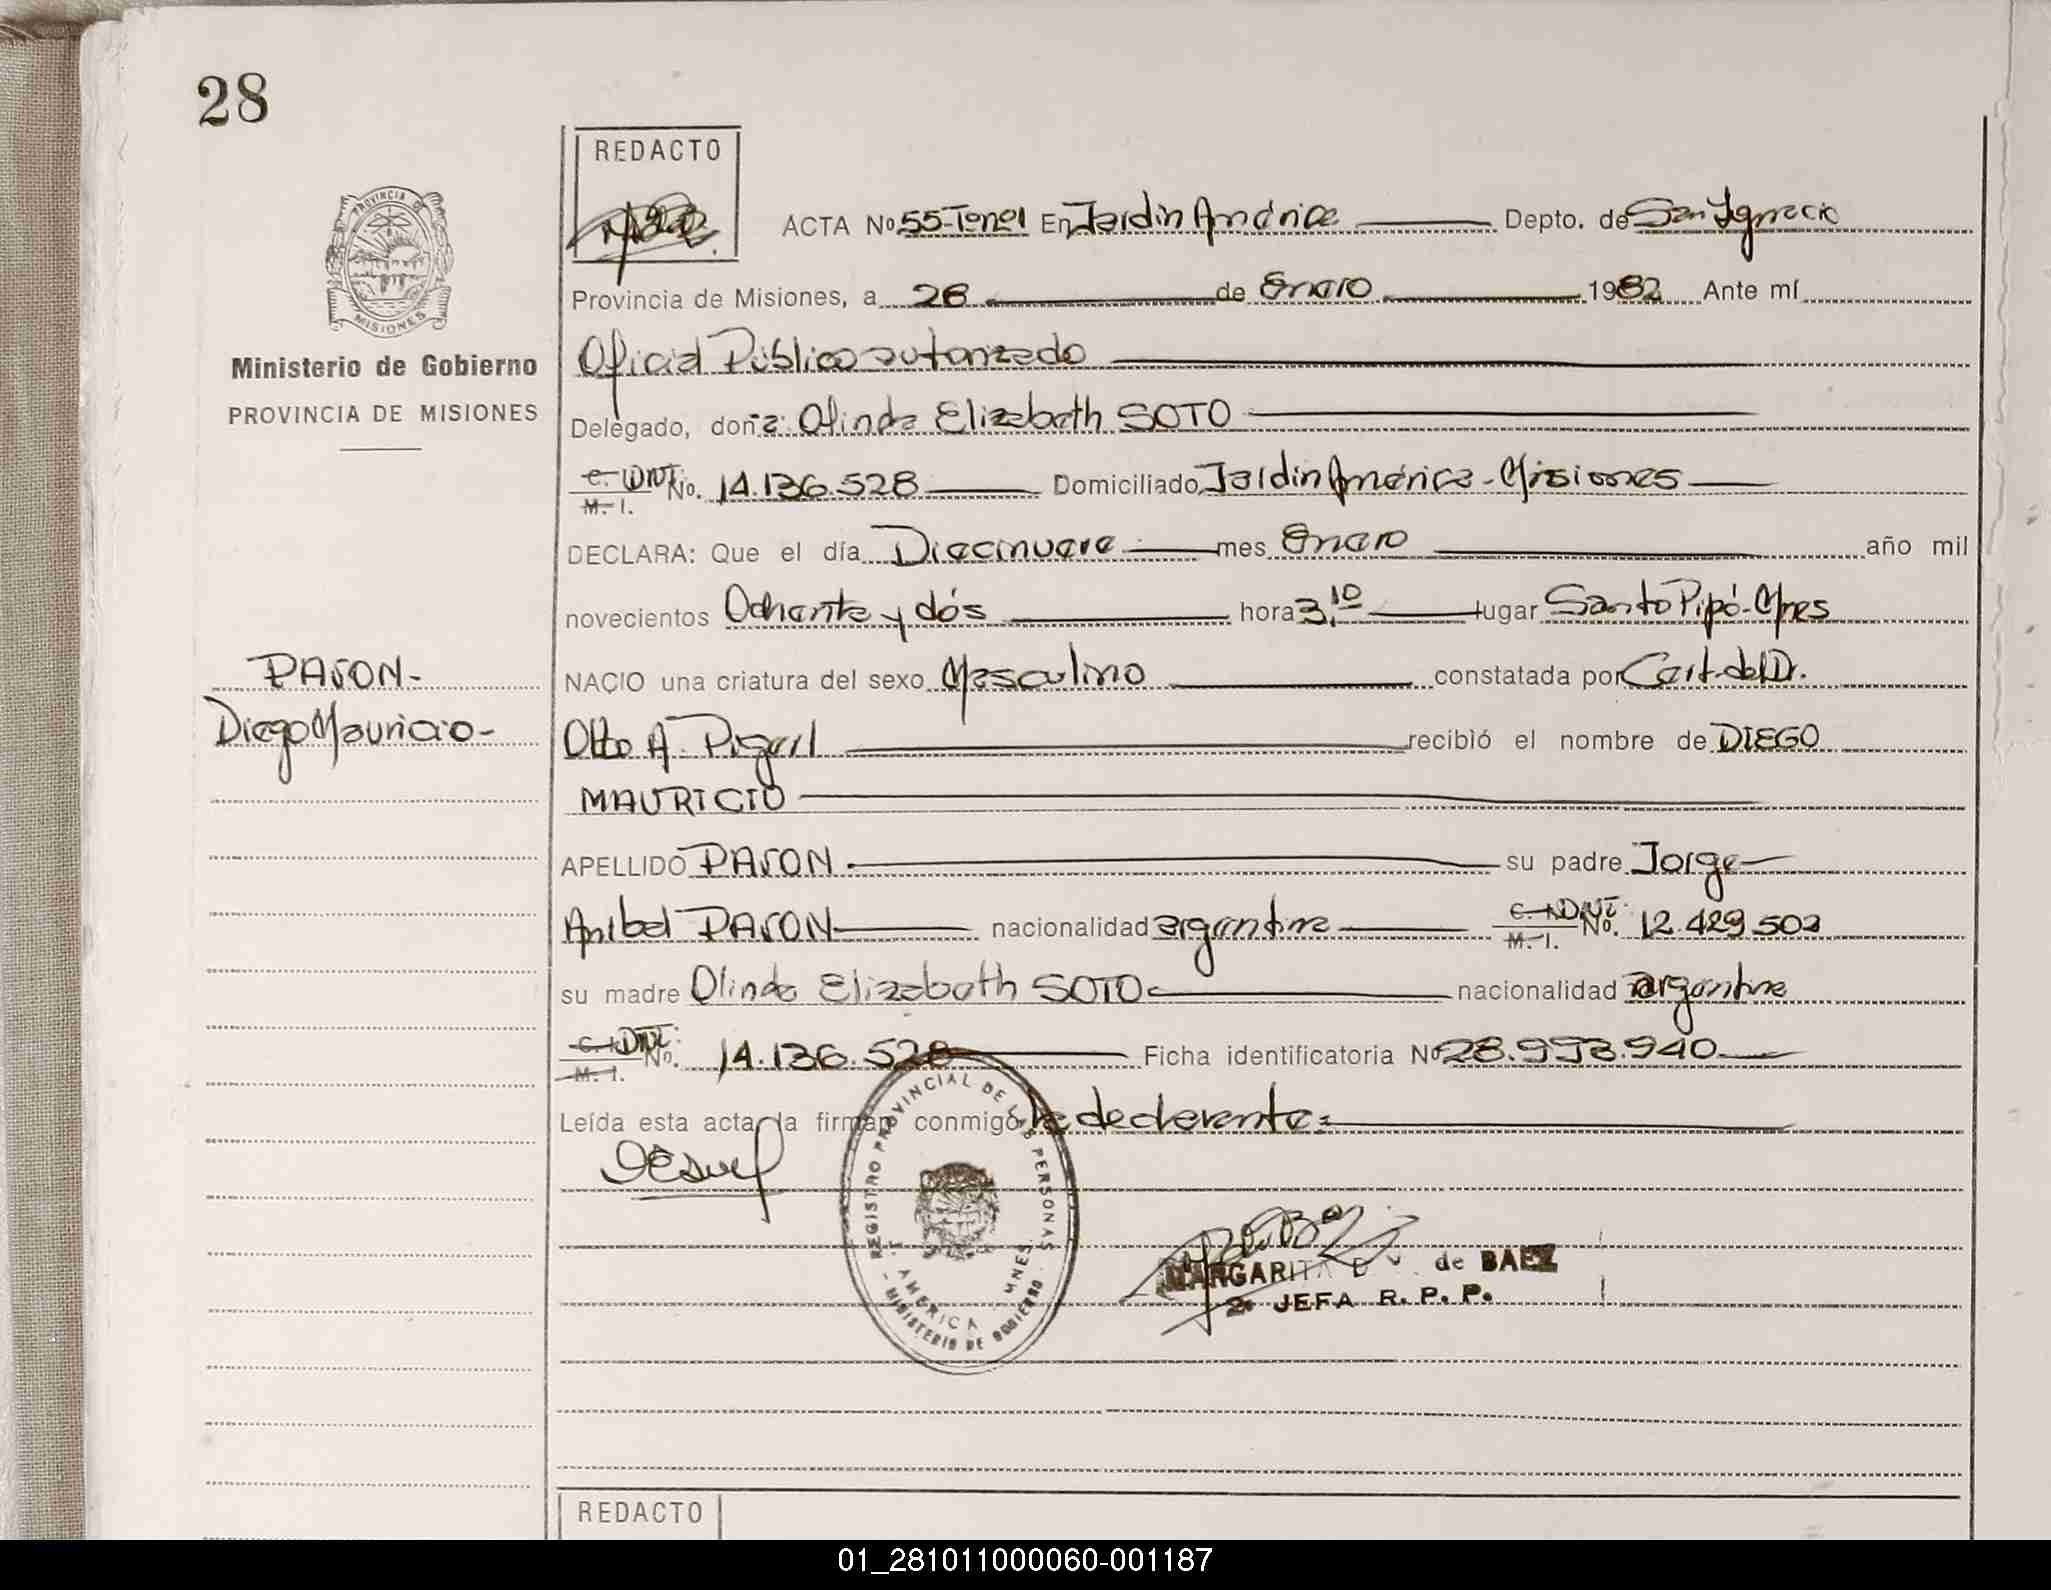 28
REDACTO
PROVINCIA DE
MISIONES
Ministerio de Gobierno
PROVINCIA DE MISIONES
PAVON-
Diego Mauricio-
ACTA No 55-Tº I En Jardín América Depto. de San Ignacio
Provincia de Misiones, a 28 de Enero 1982 Ante mí
Oficial Público autorizado
Delegado, doña: Olinda Elizabeth SOTO
C. I. DNI. M. I. No. 14.136.528 Domiciliado Jardín América - Misiones
DECLARA: Que el día Diecinueve mes Enero año mil
novecientos Ochenta y dós hora 3,10 lugar Santo Pipó-Mnes
NACIO una criatura del sexo Masculino constatada por Cert. del Dr.
Otto A. recibió el nombre de DIEGO
MAURICIO
APELLIDO PAVON su padre Jorge
Anibal PAVON nacionalidad argentina C. I. DNI. M. I. No. 12.429.502
su madre Olinda Elizabeth SOTO nacionalidad argentina
C. I. DNI. M. I. No. 14.136.528 Ficha identificatoria No 28.993.940
Leída esta acta la firman conmigo la declarante:
REGISTRO PROVINCIAL DE LAS PERSONAS
AMERICA MNES.
- MINISTERIO DE GOBIERNO -
MARGARITA de BAEZ
2ª JEFA R. P. P.
REDACTO
01_281011000060-001187